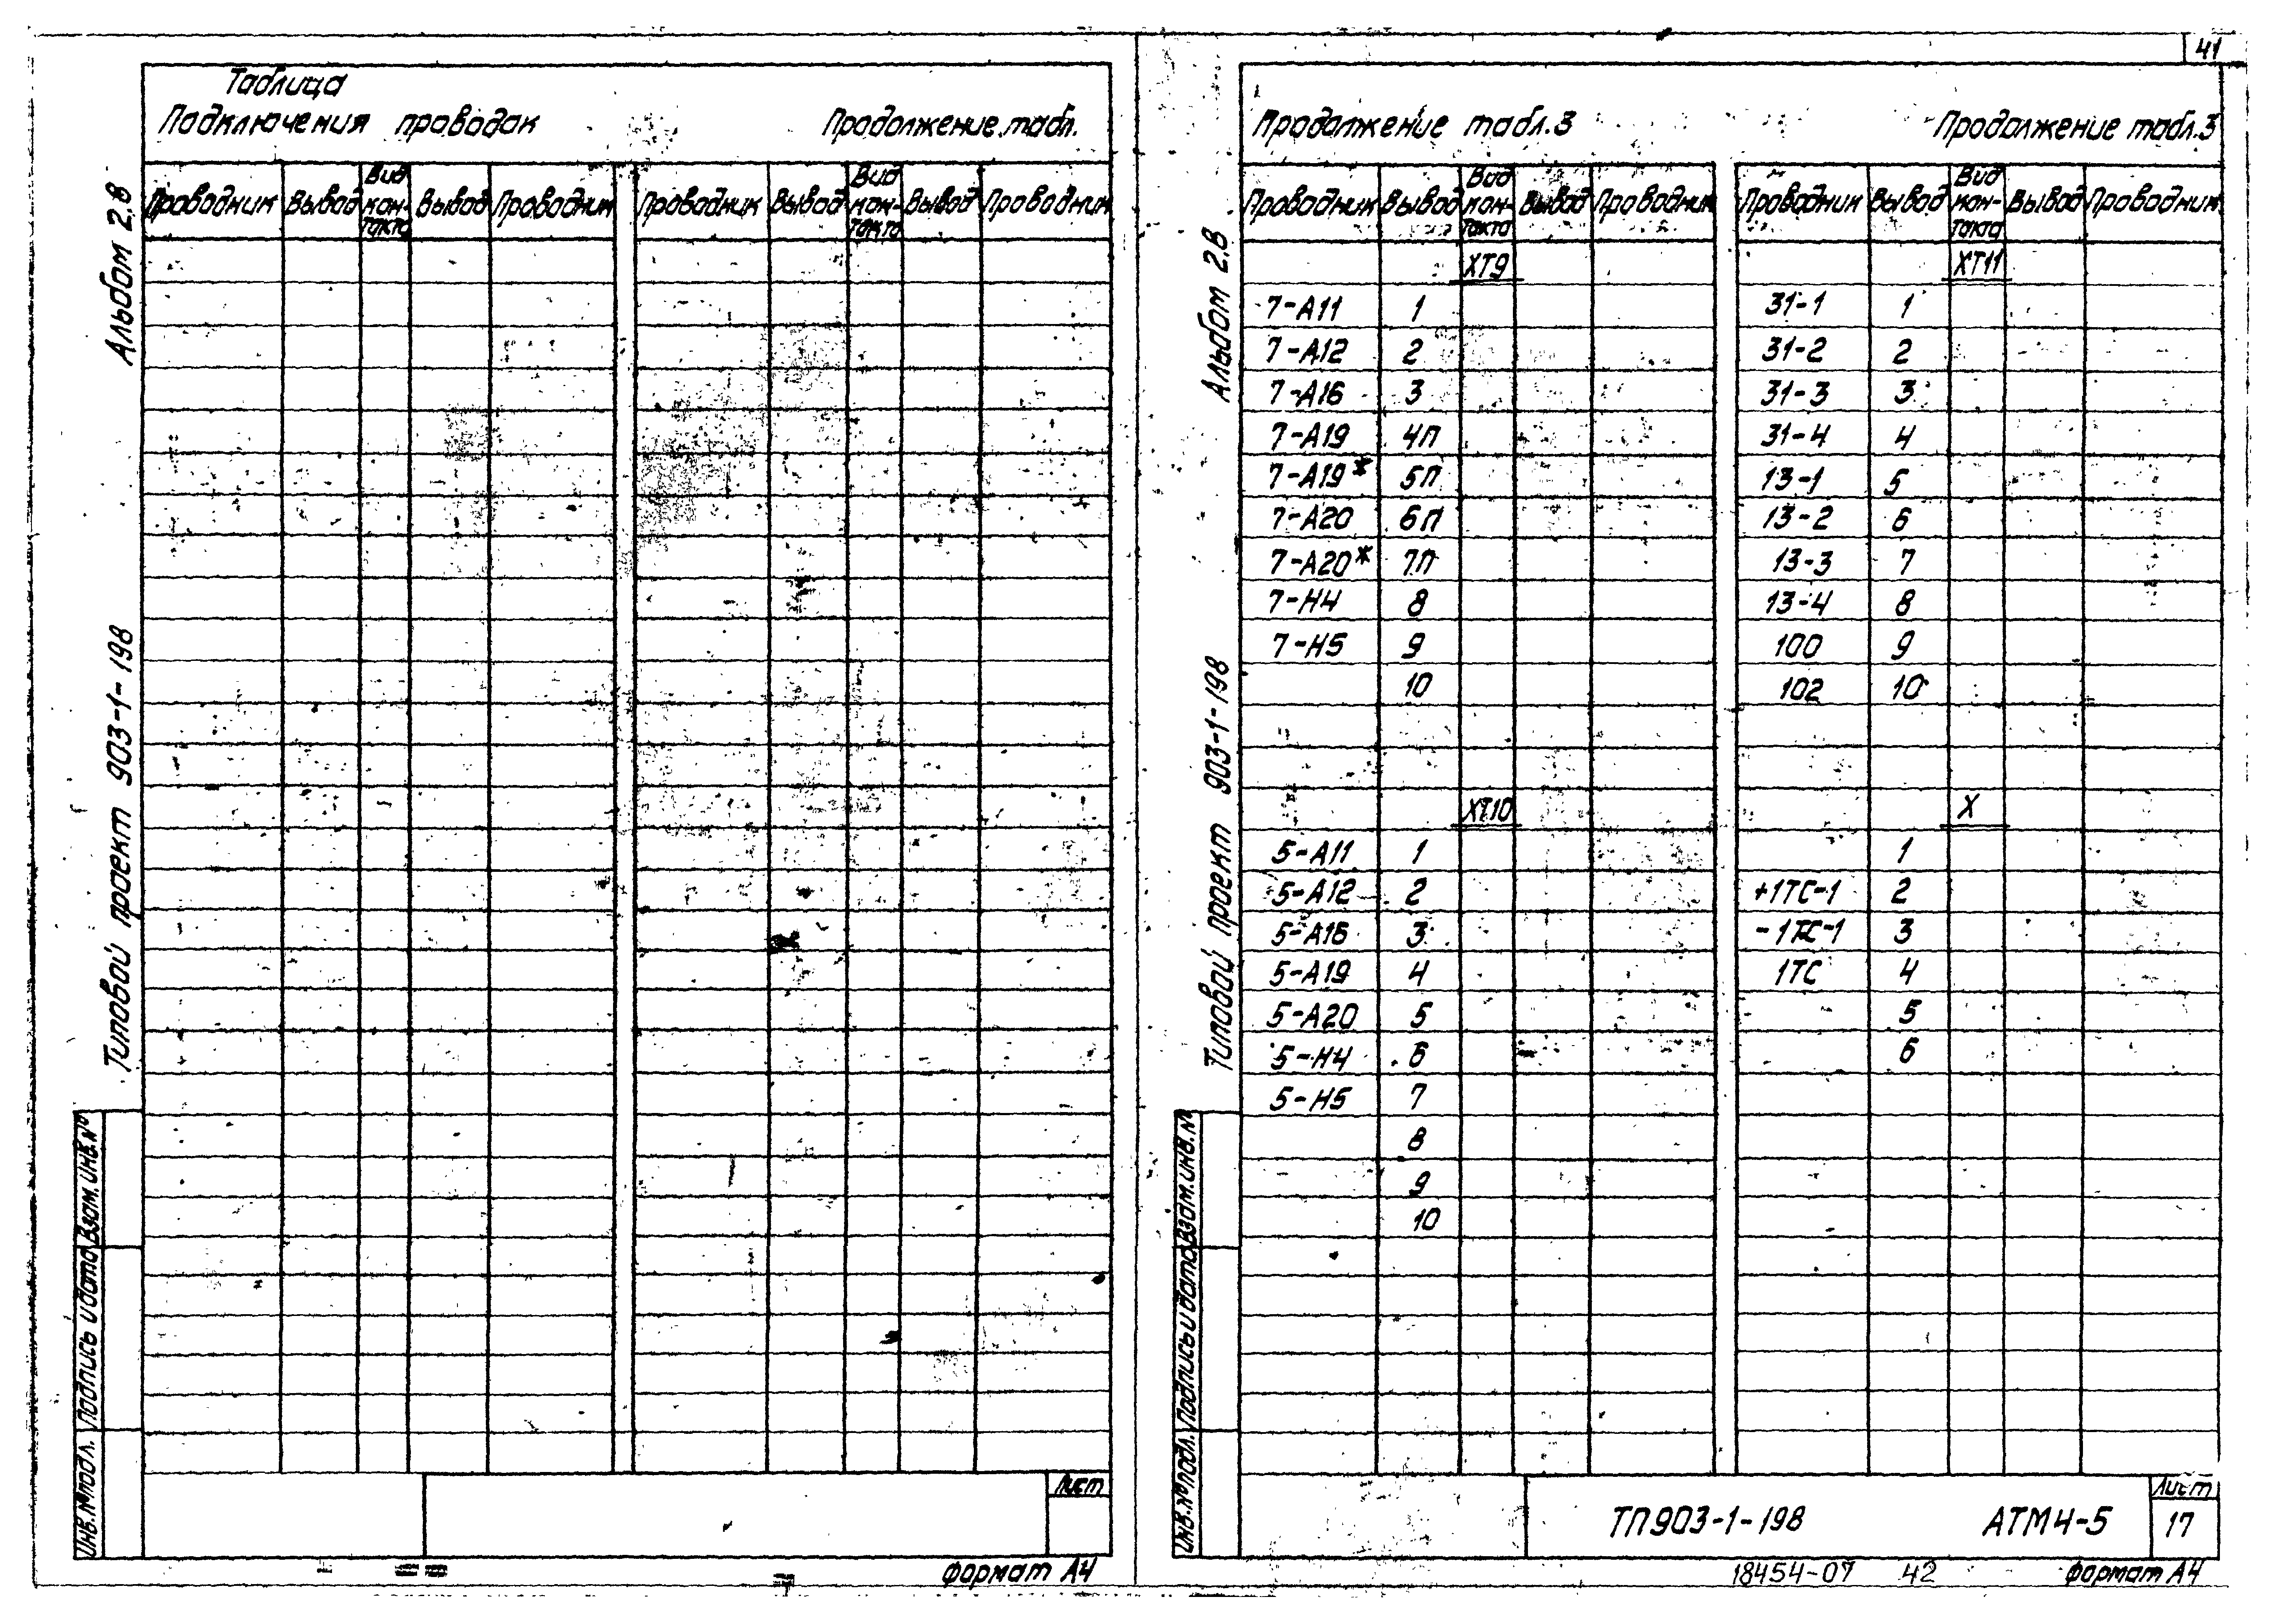 41
Таблица
Подключения проводок Продолжение табл.
Проводник Вывод Вид контакта Вывод Проводник Проводник Вывод Вид контакта Вывод Проводник
Альбом 2.8
Типовой проект 903-1-198
Инв.№подл. Подпись и дата Взам.инв.№
Лист
Формат А4
Продолжение табл.3 Продолжение табл.3
Проводник Вывод Вид контакта Вывод Проводник Проводник Вывод Вид контакта Вывод Проводник
ХТ9 ХТ11
7-А11 1 31-1 1
7-А12 2 31-2 2
7-А16 3 31-3 3
7-А19 4П 31-4 4
7-А19* 5П 13-1 5
7-А20 6П 13-2 6
7-А20* 7П 13-3 7
7-Н4 8 13-4 8
7-Н5 9 100 9
10 102 10
ХТ10 Х
5-А11 1 1
5-А12 2 +1ТС-1 2
5-А16 3 -1ТС-1 3
5-А19 4 1ТС 4
5-А20 5 5
5-Н4 6 6
5-Н5 7
8
9
10
Альбом 2.8
Типовой проект 903-1-198
Инв.№подл. Подпись и дата Взам.инв.№
ТП903-1-198 АТМ4-5 Лист
17
18454-07 42 Формат А4